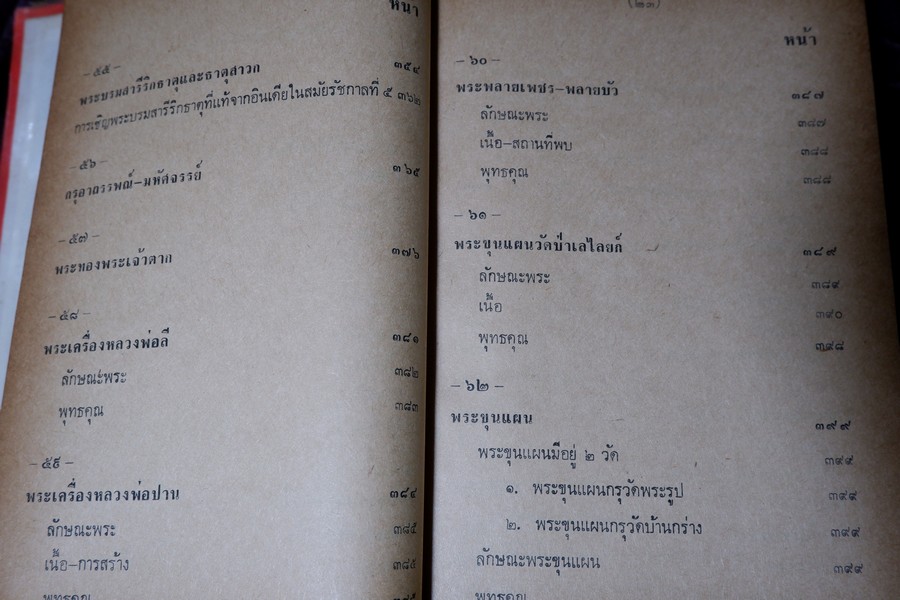 หน้า
– ๕๕ –
พระบรมสารีริกธาตุและธาตุสาวก ๓๕๔
การเชิญพระบรมสารีริกธาตุที่แท้จากอินเดียในสมัยรัชกาลที่ ๕ ๓๖๒
– ๕๖ –
กรุอาถรรพณ์–มหัศจรรย์ ๓๖๕
– ๕๗ –
พระทองพระเจ้าตาก ๓๗๖
– ๕๘ –
พระเครื่องหลวงพ่อลี ๓๘๑
ลักษณะพระ ๓๘๒
พุทธคุณ ๓๘๓
– ๕๙ –
พระเครื่องหลวงพ่อปาน ๓๘๔
ลักษณะพระ ๓๘๕
เนื้อ–การสร้าง ๓๘๕
พุทธคุณ
(๒๓)
หน้า
– ๖๐ –
พระพลายเพชร–พลายบัว ๓๘๗
ลักษณะพระ ๓๘๗
เนื้อ–สถานที่พบ ๓๘๘
พุทธคุณ ๓๘๘
– ๖๑ –
พระขุนแผนวัดป่าเลไลยก์ ๓๘๙
ลักษณะพระ ๓๘๙
เนื้อ ๓๙๐
พุทธคุณ ๓๙๘
– ๖๒ –
พระขุนแผน ๓๙๙
พระขุนแผนมีอยู่ ๒ วัด ๓๙๙
๑. พระขุนแผนกรุวัดพระรูป ๓๙๙
๒. พระขุนแผนกรุวัดบ้านกร่าง ๓๙๙
ลักษณะพระขุนแผน ๓๙๙
พุทธคุณ